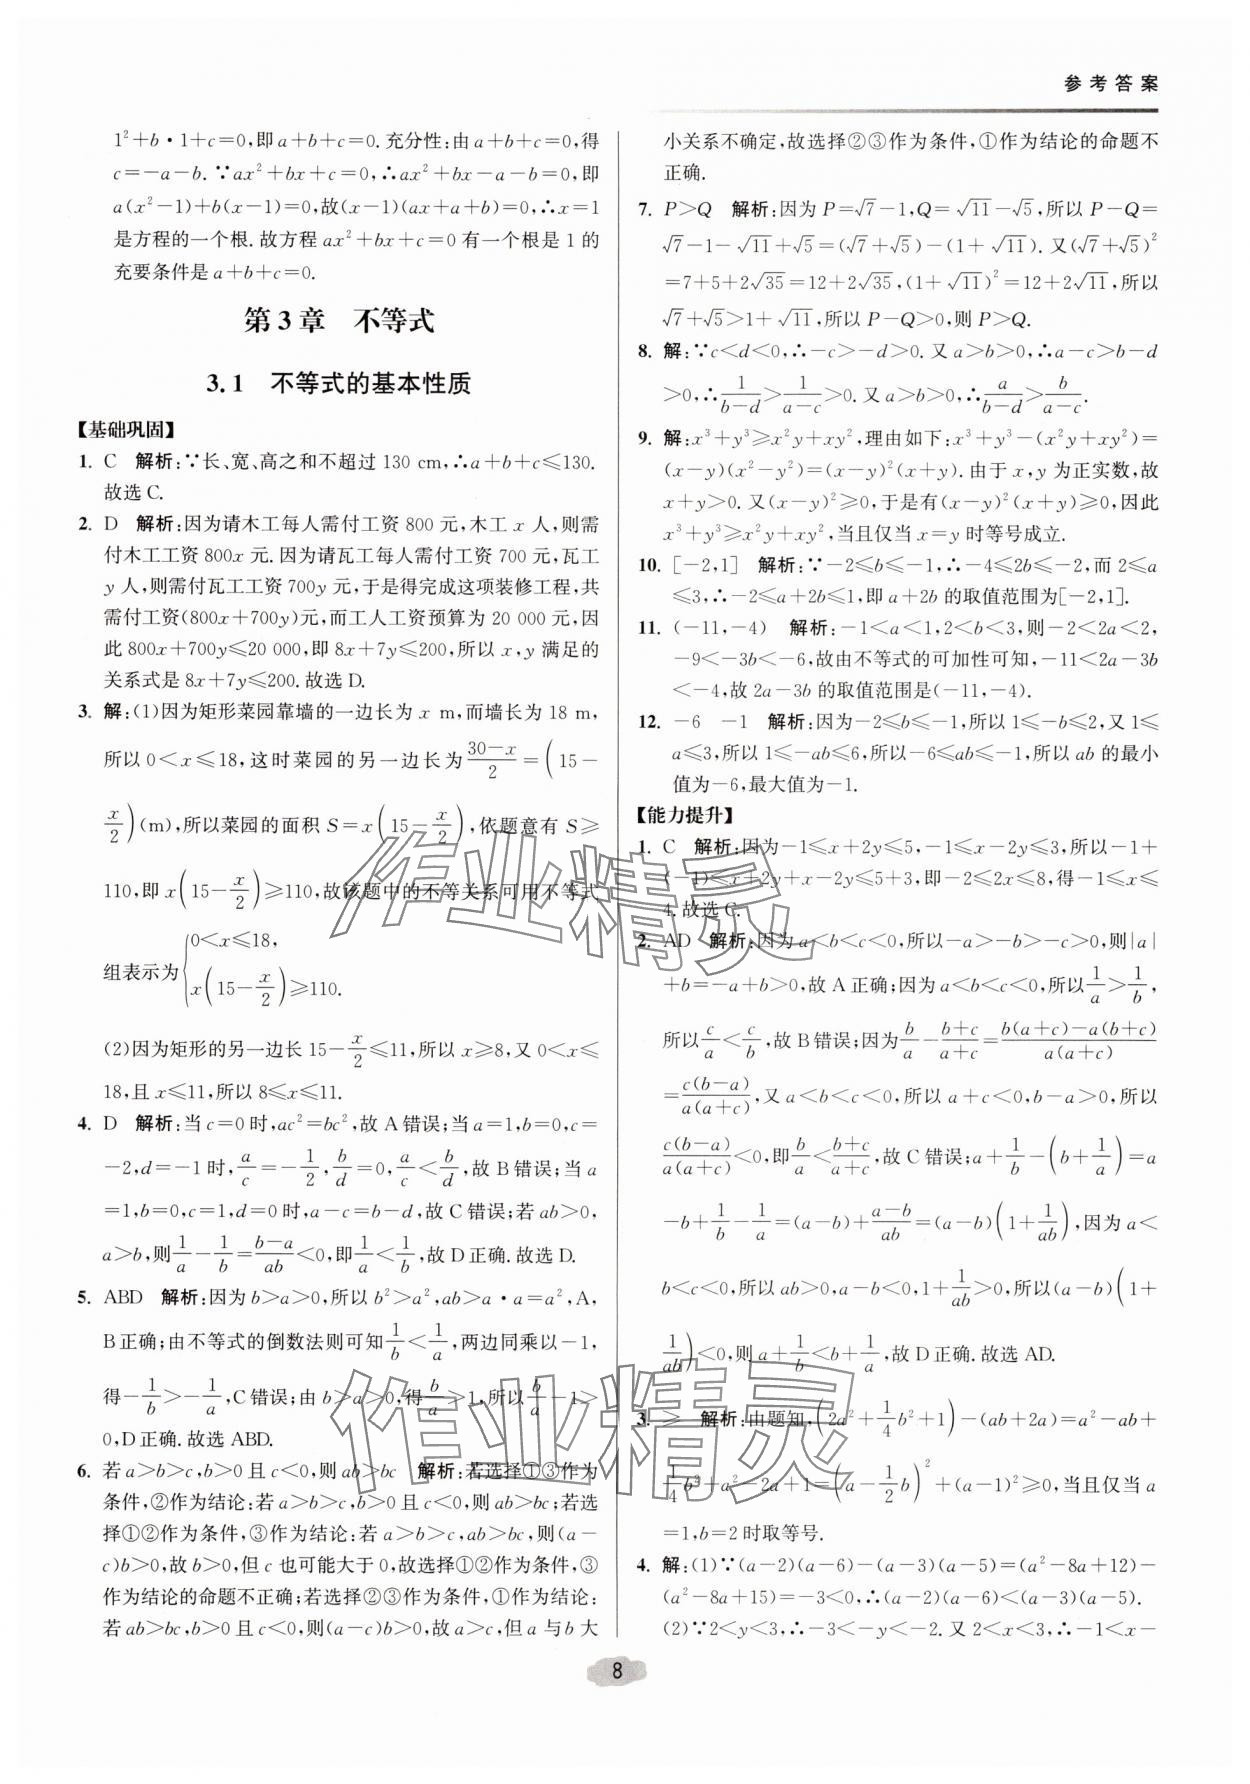 参考答案
1²+b·1+c=0,即a+b+c=0.充分性:由a+b+c=0,得
c=-a-b.∵ax²+bx+c=0,∴ax²+bx-a-b=0,即
a(x²-1)+b(x-1)=0,故(x-1)(ax+a+b)=0,∴x=1
是方程的一个根.故方程ax²+bx+c=0有一个根是1的
充要条件是a+b+c=0.
第3章 不等式
3.1 不等式的基本性质
【基础巩固】
1. C 解析:∵长、宽、高之和不超过130 cm,∴a+b+c≤130.
故选C.
2. D 解析:因为请木工每人需付工资800元,木工x人,则需
付木工工资800x元.因为请瓦工每人需付工资700元,瓦工
y人,则需付瓦工工资700y元,于是得完成这项装修工程,共
需付工资(800x+700y)元,而工人工资预算为20 000元,因
此800x+700y≤20 000,即8x+7y≤200,所以x,y满足的
关系式是8x+7y≤200.故选D.
3. 解:(1)因为矩形菜园靠墙的一边长为x m,而墙长为18 m,
所以0<x≤18,这时菜园的另一边长为(30-x)/2=(15-
x/2)(m),所以菜园的面积S=x(15-x/2),依题意有S≥
110,即x(15-x/2)≥110,故该题中的不等关系可用不等式
组表示为{0<x≤18,
x(15-x/2)≥110.
(2)因为矩形的另一边长15-x/2≤11,所以x≥8,又0<x≤
18,且x≤11,所以8≤x≤11.
4. D 解析:当c=0时,ac²=bc²,故A错误;当a=1,b=0,c=
-2,d=-1时,a/c=-1/2,b/d=0,a/c<b/d,故B错误;当a
=1,b=0,c=1,d=0时,a-c=b-d,故C错误;若ab>0,
a>b,则1/a-1/b=(b-a)/ab<0,即1/a<1/b,故D正确.故选D.
5. ABD 解析:因为b>a>0,所以b²>a²,ab>a·a=a²,A,
B正确;由不等式的倒数法则可知1/b<1/a,两边同乘以-1,
得-1/b>-1/a,C错误;由b>a>0,得b/a>1,所以b/a-1>
0,D正确.故选ABD.
6. 若a>b>c,b>0且c<0,则ab>bc 解析:若选择①③作为
条件,②作为结论:若a>b>c,b>0且c<0,则ab>bc;若选
择①②作为条件,③作为结论:若a>b>c,ab>bc,则(a-
c)b>0,故b>0,但c也可能大于0,故选择①②作为条件,③
作为结论的命题不正确;若选择②③作为条件,①作为结论:
若ab>bc,b>0且c<0,则(a-c)b>0,故a>c,但a与b大
小关系不确定,故选择②③作为条件,①作为结论的命题不
正确.
7. P>Q 解析:因为P=√7-1,Q=√11-√5,所以P-Q=
√7-1-√11+√5=(√7+√5)-(1+√11).又(√7+√5)²
=7+5+2√35=12+2√35,(1+√11)²=12+2√11,
√7+√5>1+√11,所以P-Q>0,则P>Q.
8. 解:∵c<d<0,∴-c>-d>0.又a>b>0,∴a-c>b-d
>0,∴1/(b-d)>1/(a-c)>0.又a>b>0,∴a/(b-d)>b/(a-c).
9. 解:x³+y³≥x²y+xy²,理由如下:x³+y³-(x²y+xy²)=
(x-y)(x²-y²)=(x-y)²(x+y).由于x,y为正实数,故
x+y>0.又(x-y)²≥0,于是有(x-y)²(x+y)≥0,因此
x³+y³≥x²y+xy²,当且仅当x=y时等号成立.
10. [-2,1] 解析:∵-2≤b≤-1,∴-4≤2b≤-2,而2≤a
≤3,∴-2≤a+2b≤1,即a+2b的取值范围为[-2,1].
11. (-11,-4) 解析:-1<a<1,2<b<3,则-2<2a<2,
-9<-3b<-6,故由不等式的可加性可知,-11<2a-3b
<-4,故2a-3b的取值范围是(-11,-4).
12. -6 -1 解析:因为-2≤b≤-1,所以1≤-b≤2,又1≤
a≤3,所以1≤-ab≤6,所以-6≤ab≤-1,所以ab的最小
值为-6,最大值为-1.
【能力提升】
1. C 解析:因为-1≤x+2y≤5,-1≤x-2y≤3,所以-1+
(-1)≤x+2y+x-2y≤5+3,即-2≤2x≤8,得-1≤x≤
4.故选C.
2. AD 解析:因为a<b<c<0,所以-a>-b>-c>0,则|a|
+b=-a+b>0,故A正确;因为a<b<c<0,所以1/a>1/b,
所以c/a<c/b,故B错误;因为b/a-(b+c)/(a+c)=(b(a+c)-a(b+c))/(a(a+c))
=c(b-a)/(a(a+c)),又a<b<c<0,所以a+c<0,b-a>0,所以
c(b-a)/(a(a+c))<0,即b/a<(b+c)/(a+c),故C错误;a+1/b-(b+1/a)=a
-b+1/b-1/a=(a-b)+(a-b)/ab=(a-b)(1+1/ab),因为a<
b<c<0,所以ab>0,a-b<0,1+1/ab>0,所以(a-b)(1+
1/ab)<0,则a+1/b<b+1/a,故D正确.故选AD.
3. ≥ 解析:由题知,(2a²+1/4b²+1)-(ab+2a)=a²-ab+
1/4b²+a²-2a+1=(a-1/2b)²+(a-1)²≥0,当且仅当a
=1,b=2时取等号.
4. 解:(1)∵(a-2)(a-6)-(a-3)(a-5)=(a²-8a+12)-
(a²-8a+15)=-3<0,∴(a-2)(a-6)<(a-3)(a-5).
(2)∵2<y<3,∴-3<-y<-2.又2<x<3,∴-1<x-
8
作业精灵
作业精灵